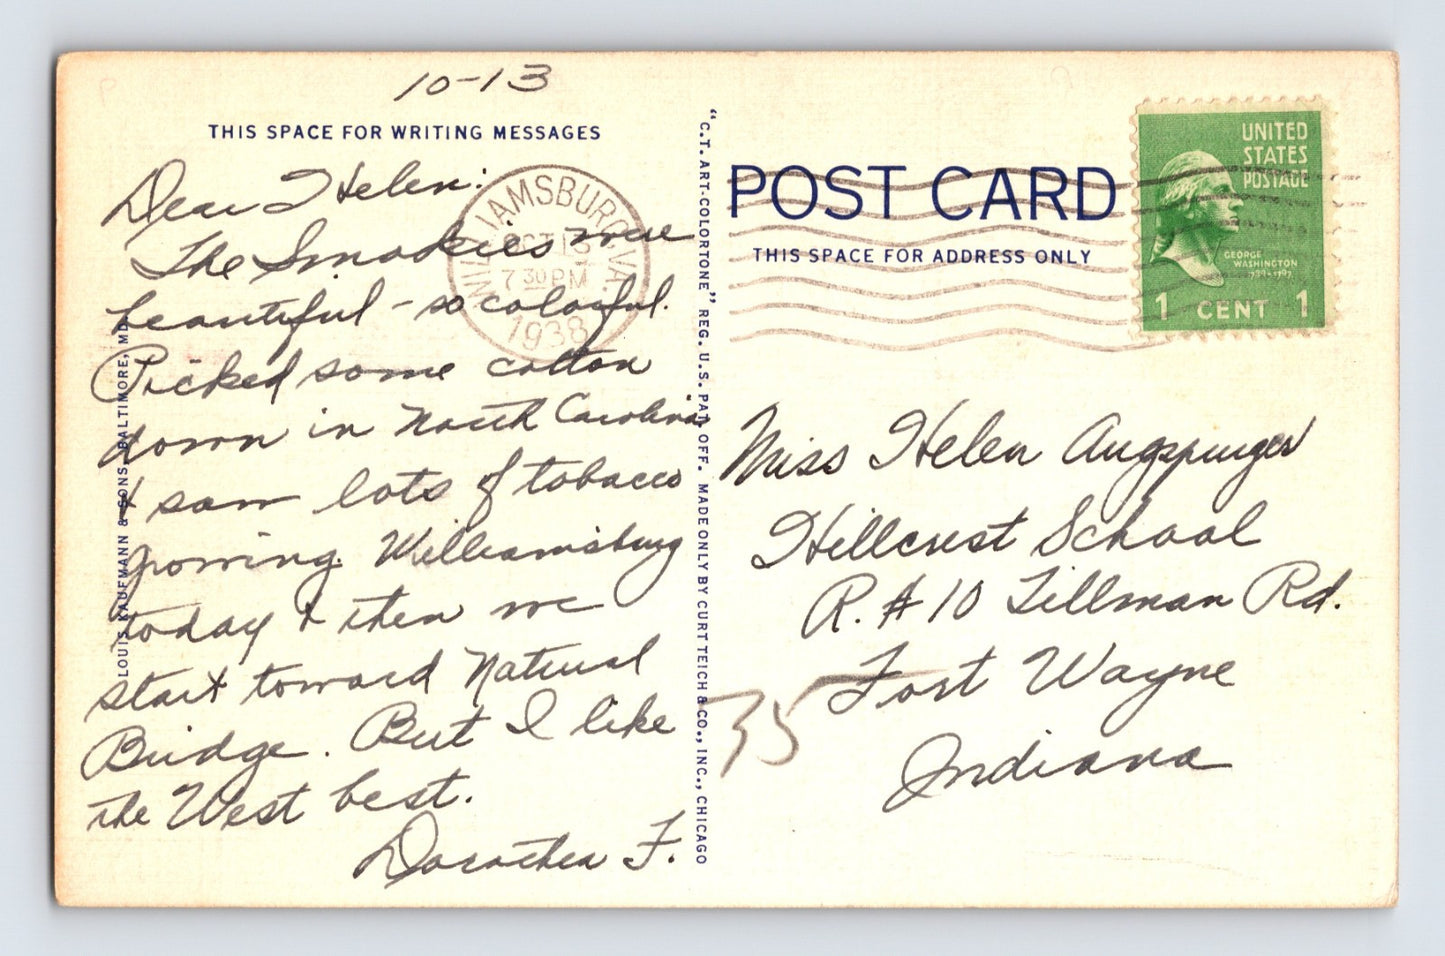 10-13
THIS SPACE FOR WRITING MESSAGES
Dear Helen:
The Smokies were
beautiful - so colorful.
Picked some cotton
down in North Carolina
& saw lots of tobacco
growing. Williamsburg
today & then we
start toward Natural
Bridge. But I like
the West best.
Dorothea F.
WILLIAMSBURG VA.
OCT 13
7 30 PM
1938
LOUIS KAUFMANN & SONS, BALTIMORE, MD.
"C.T. ART-COLORTONE" REG. U.S. PAT. OFF. MADE ONLY BY CURT TEICH & CO., INC., CHICAGO
POST CARD
THIS SPACE FOR ADDRESS ONLY
UNITED
STATES
POSTAGE
GEORGE
WASHINGTON
1732-1797
1 CENT 1
Miss Helen Augspurger
Hillcrest School
R. # 10 Tillman Rd.
Fort Wayne
Indiana
35